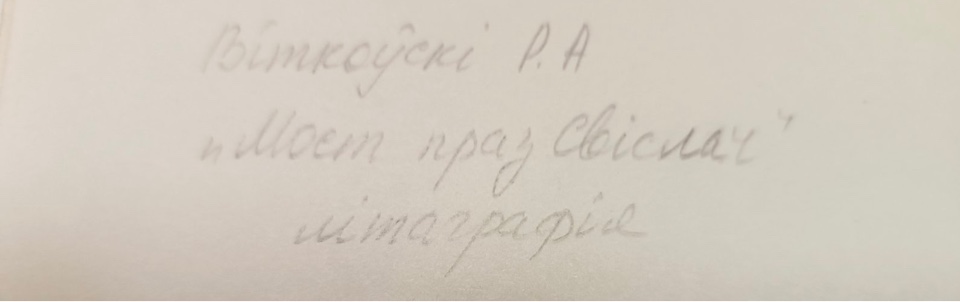 Віткоўскі Р. А
„Мост праз Свіслач“
літаграфія